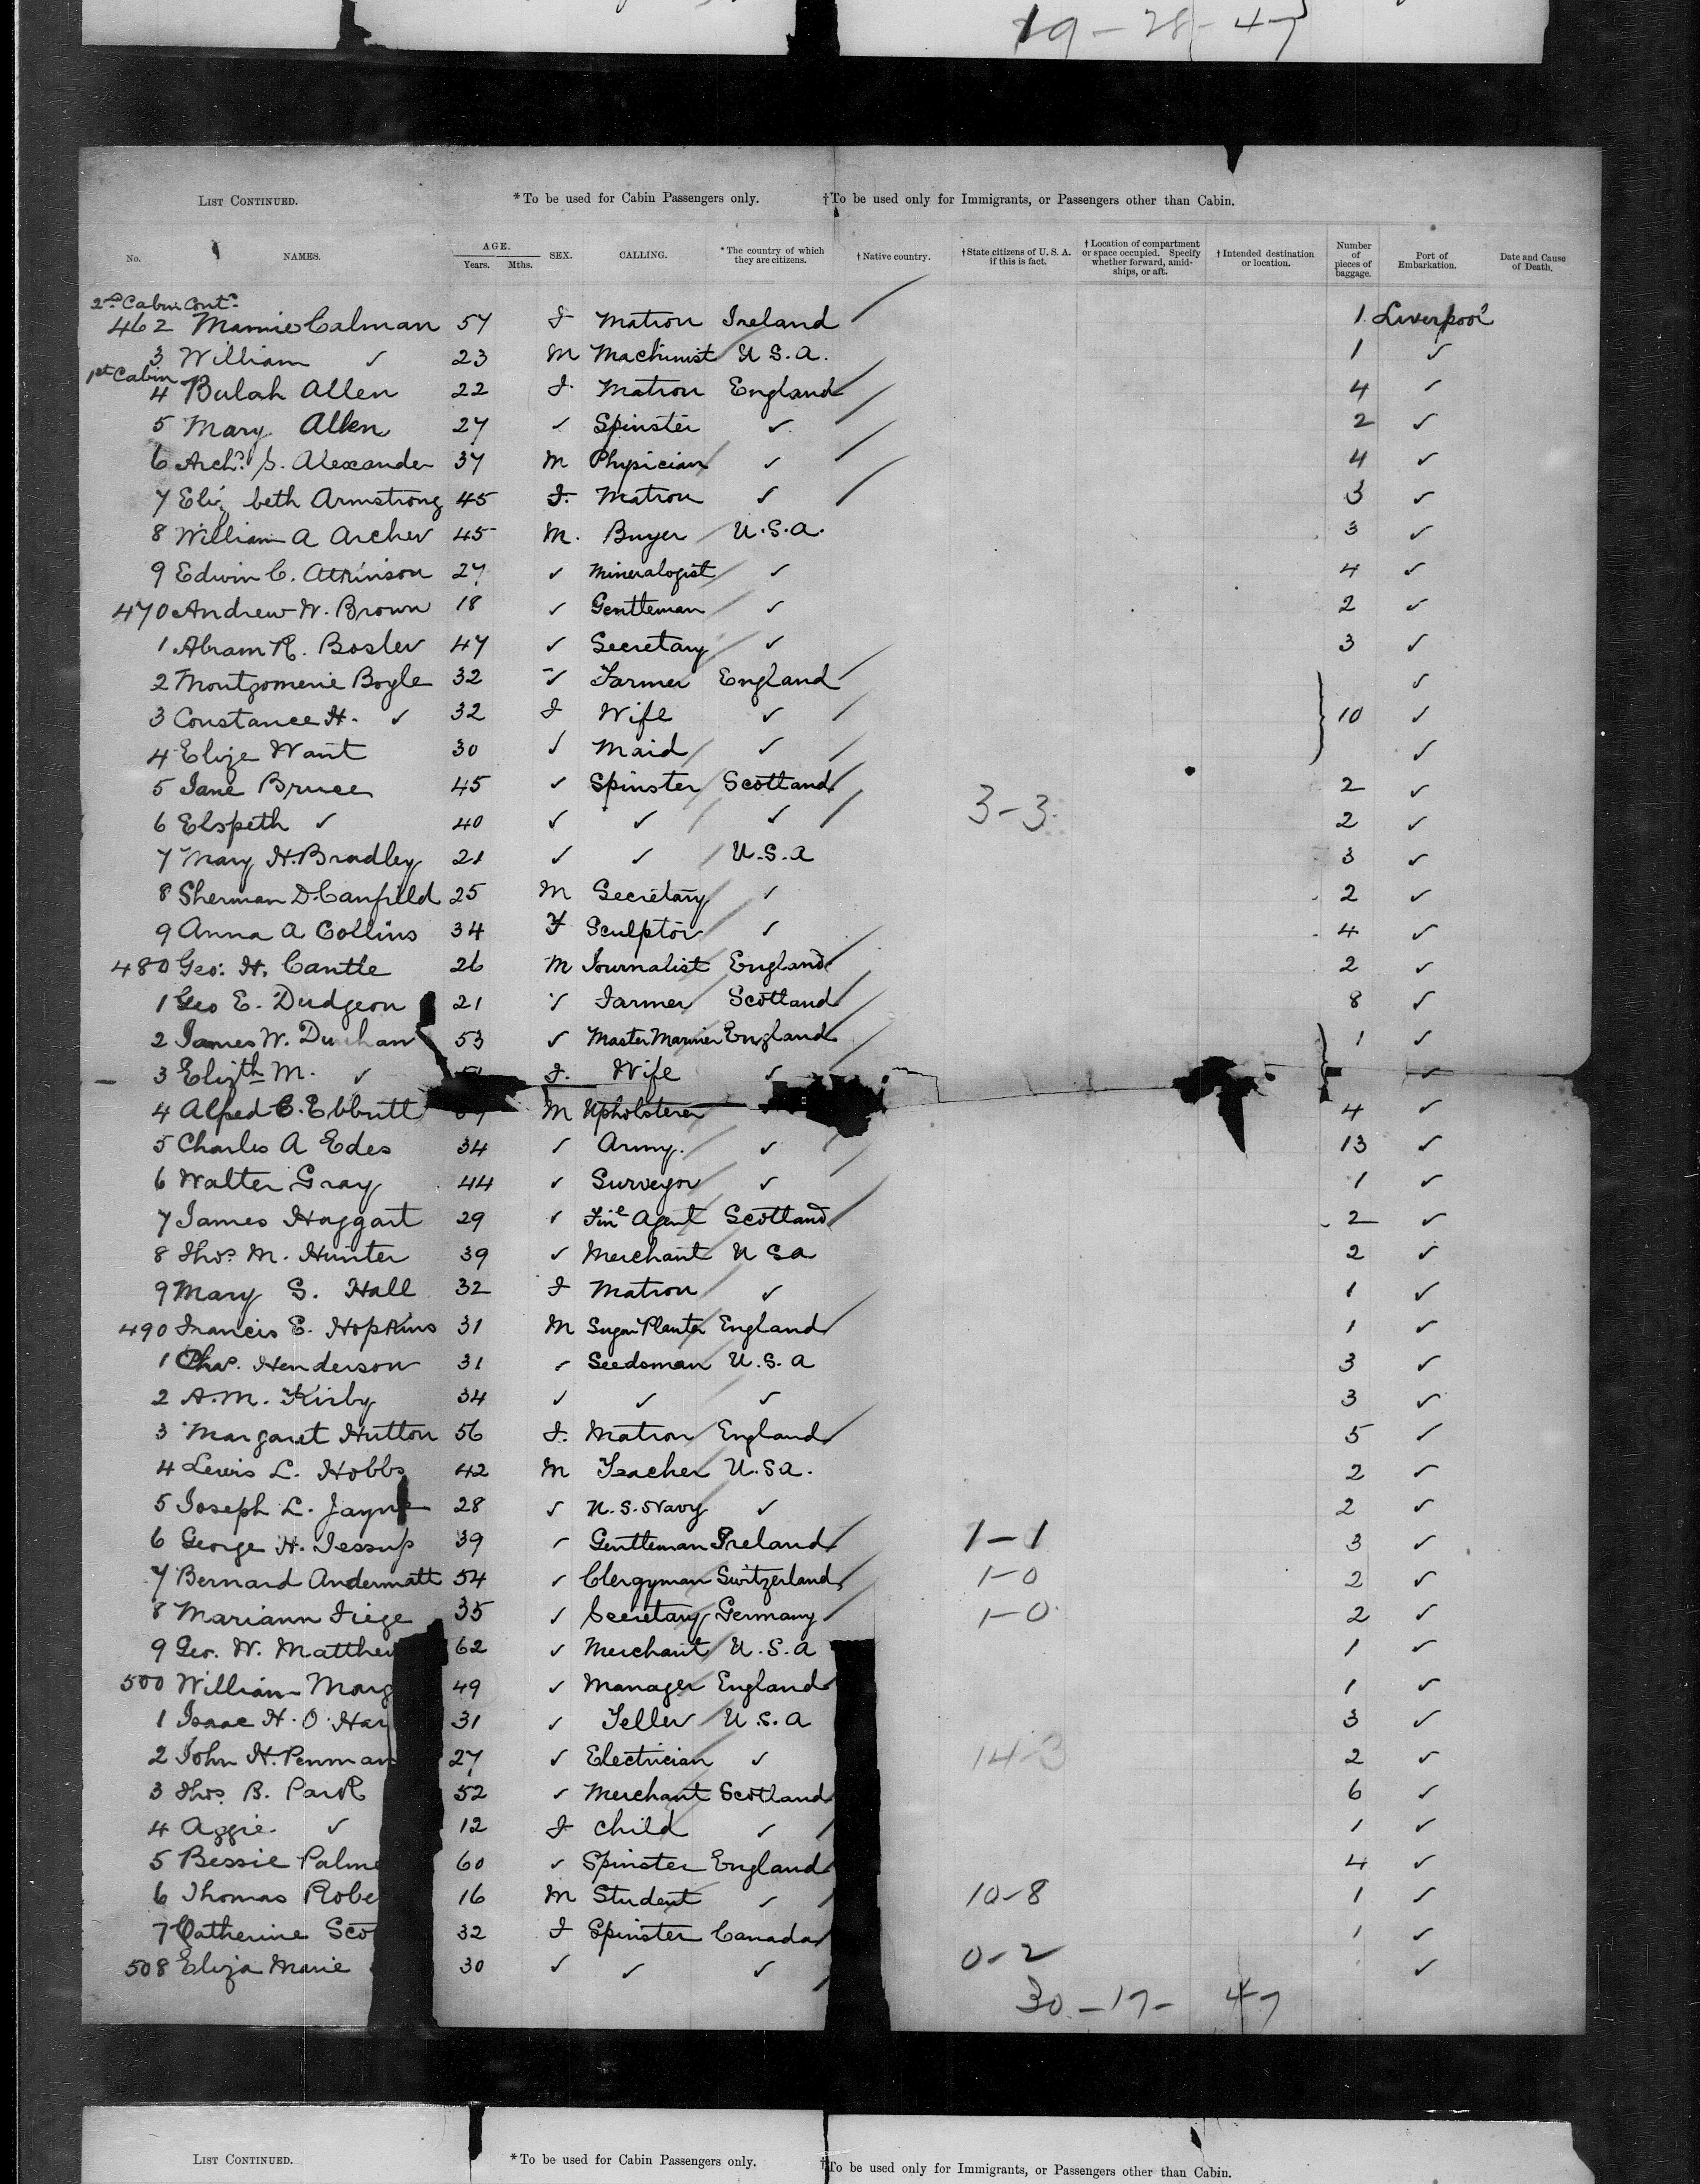 19-28-47
LIST CONTINUED. *To be used for Cabin Passengers only. †To be used only for Immigrants, or Passengers other than Cabin.
No. NAMES. AGE. Years. Mths. SEX. CALLING. *The country of which they are citizens. †Native country. †State citizens of U. S. A. if this is fact. †Location of compartment or space occupied. Specify whether forward, amidships, or aft. †Intended destination or location. Number of pieces of baggage. Port of Embarkation. Date and Cause of Death.
2nd Cabin Contd
462 Mamie Calman 57 F Matron Ireland 1 Liverpool
3 William ✓ 23 M Machinist U.S.A. 1 ✓
1st Cabin
4 Bulah Allen 22 F Matron England 4 ✓
5 Mary Allen 27 ✓ Spinster ✓ 2 ✓
6 Archd. S. Alexander 37 M Physician ✓ 4 ✓
7 Eliz beth Armstrong 45 F. Matron ✓ 3 ✓
8 William A Archer 45 M. Buyer U.S.A. 3 ✓
9 Edwin C. Atkinson 27 ✓ Mineralogist ✓ 4 ✓
470 Andrew W. Brown 18 ✓ Gentleman ✓ 2 ✓
1 Abram R. Bosler 47 ✓ Secretary ✓ 3 ✓
2 Montgomerie Boyle 32 ✓ Farmer England ✓
3 Constance H. ✓ 32 F Wife ✓ 10 ✓
4 Elize Want 30 ✓ Maid ✓ ✓
5 Jane Bruce 45 ✓ Spinster Scotland 2 ✓
6 Elspeth ✓ 40 ✓ ✓ ✓ 3-3 2 ✓
7 Mary H. Bradley 21 ✓ ✓ U.S.A 3 ✓
8 Sherman D. Canfield 25 M Secretary ✓ 2 ✓
9 Anna A Collins 34 F Sculptor ✓ 4 ✓
480 Geo: H. Cantle 26 M Journalist England 2 ✓
1 Geo E. Dudgeon 21 ✓ Farmer Scotland 8 ✓
2 James W. 53 ✓ Master Mariner England 1 ✓
3 Elizth M. ✓ F. Wife ✓ ✓
4 Alfred C. Ebbutt M Upholsterer 4 ✓
5 Charles A Edes 34 ✓ Army. ✓ 13 ✓
6 Walter Gray 44 ✓ Surveyor ✓ 1 ✓
7 James Haggart 29 ✓ Finl Agent Scotland 2 ✓
8 Thos. M. Hunter 39 ✓ Merchant U S a 2 ✓
9 Mary S. Hall 32 F Matron ✓ 1 ✓
490 Francis E. Hopkins 31 M Sugar Planter England 1 ✓
1 Chas. Henderson 31 ✓ Seedsman U.S.a 3 ✓
2 A.M. Kirby 34 ✓ ✓ ✓ 3 ✓
3 Margaret Hutton 56 F. Matron England 5 ✓
4 Lewis L. Hobbs 42 M Teacher U.S.a. 2 ✓
5 Joseph L. Jayne 28 ✓ U.S. Navy ✓ 2 ✓
6 George H. Jessup 39 ✓ Gentleman Ireland 1-1 3 ✓
7 Bernard Andermatt 54 ✓ Clergyman Switzerland 1-0 2 ✓
8 Mariann Fiege 35 ✓ Secretary Germany 1-0 2 ✓
9 Geo. W. Matthew 62 ✓ Merchant U.S.A 1 ✓
500 William Marg 49 ✓ Manager England 1 ✓
1 Isaac H. O'Har 31 ✓ Teller U.S.A 3 ✓
2 John H. Penman 27 ✓ Electrician ✓ 14-3 2 ✓
3 Thos. B. Park 52 ✓ Merchant Scotland 6 ✓
4 Aggie ✓ 12 F Child ✓ 1 ✓
5 Bessie Palme 60 ✓ Spinster England 4 ✓
6 Thomas Robe 16 M Student ✓ 10-8 1 ✓
7 Catherine Sco 32 F Spinster Canada 1 ✓
508 Eliza Marie 30 ✓ ✓ ✓ 0-2 ✓
30-17-47
LIST CONTINUED. *To be used for Cabin Passengers only. †To be used only for Immigrants, or Passengers other than Cabin.